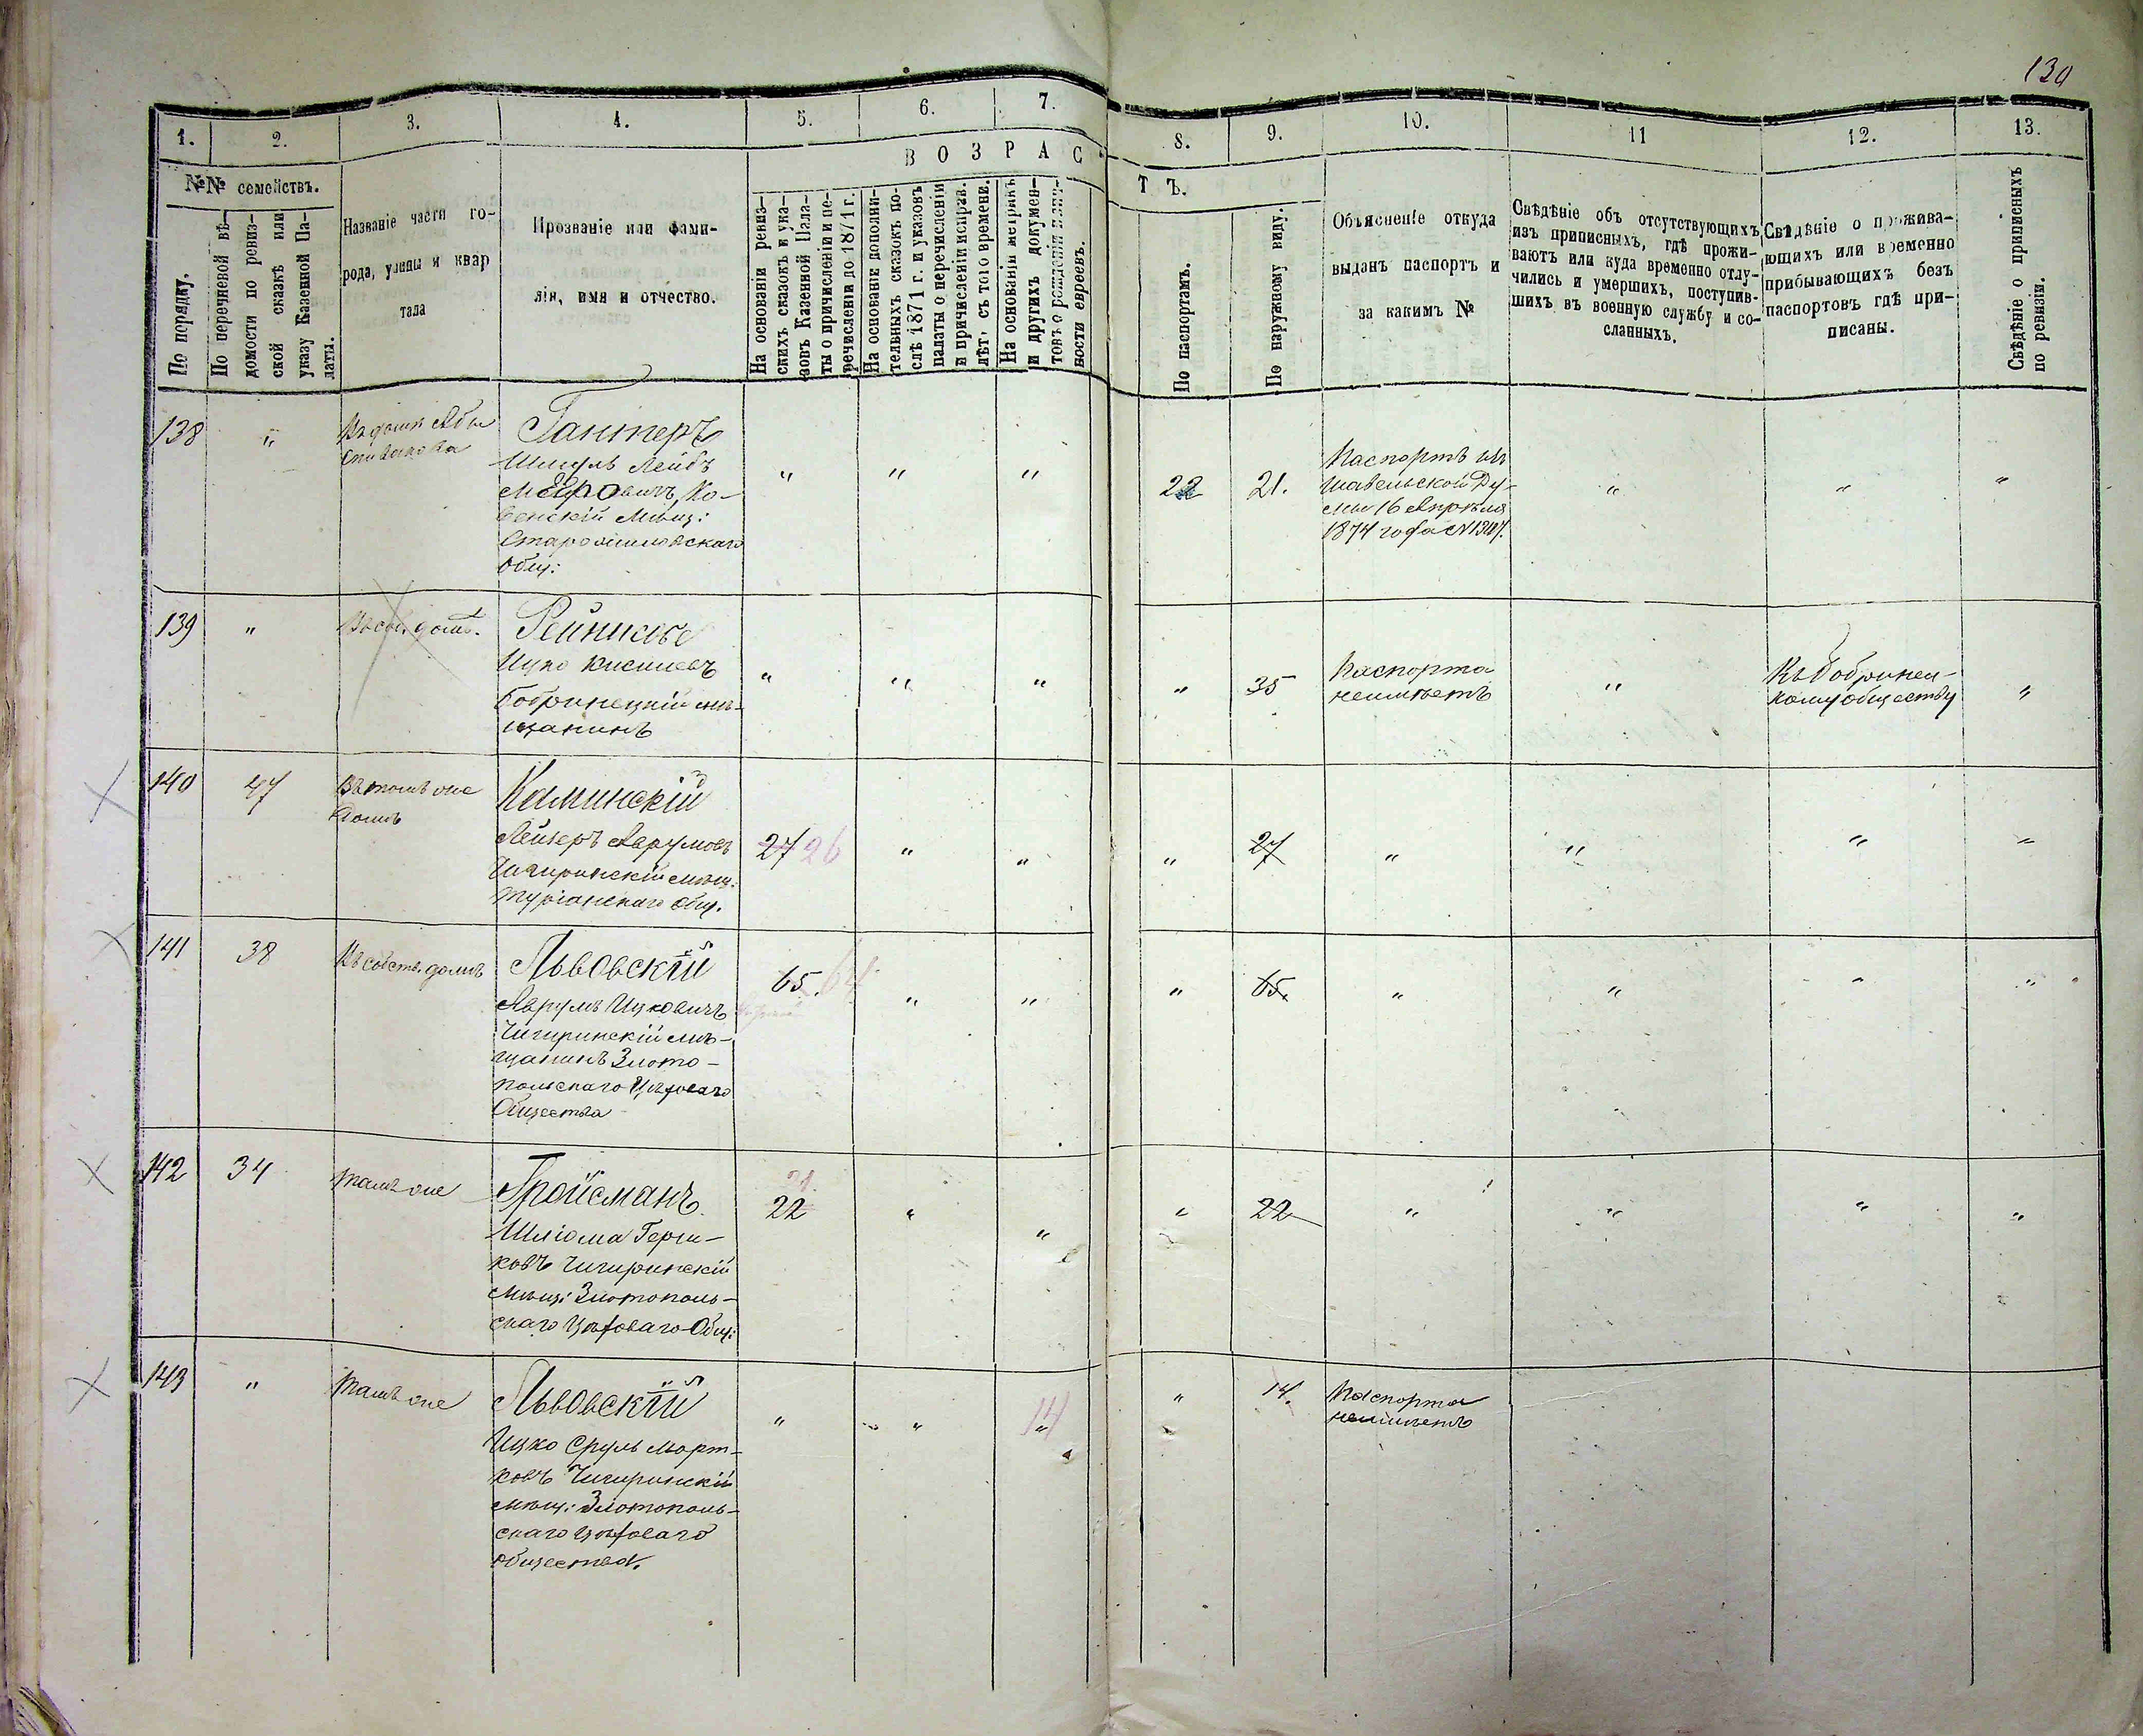 130
1.
2.
3.
4.
5.
6.
7.
8.
9.
10.
11
12.
13.
№№ семействъ.
По порядку.
По перечневой вѣ-
домости по ревиз-
ской сказкѣ или
указу Казенной Па-
латы.
Названіе части го-
рода, улицы и квар
тала
Прозваніе или фами-
лія, имя и отчество.
ВОЗРАС
ТЪ.
На основаніи ревиз-
скихъ сказокъ и ука-
зовъ Казенной Пала-
ты о причисленіи и пе-
речисленіи до 1871 г.
На основаніе дополни-
тельныхъ сказокъ по-
слѣ 1871 г. и указовъ
палаты о перечисленіи
и причисленіи исправ.
лѣт. съ того времени.
На основаніи метрикъ
и другихъ докумен-
товъ о рожденіи
ности евреевъ.
По паспортамъ.
По наружному виду.
Объясненіе откуда
выданъ паспортъ и
за какимъ №
Свѣдѣніе объ отсутствующихъ
изъ приписныхъ, гдѣ прожи-
ваютъ или куда временно отлу-
чились и умершихъ, поступив-
шихъ въ военную службу и со-
сланныхъ.
Свѣдѣніе о прожива-
ющихъ или временно
прибывающихъ безъ
паспортовъ гдѣ при-
писаны.
Свѣдѣніе о приписныхъ
по ревизіи.
138 " Въ домѣ Абы
Спивакова
Гантеръ
Шмуль Лейбъ
Меѣровичъ, Ко-
венскій мѣщ:
общ:
" " " 22 21.
Паспортъ изъ
Шавельской Ду-
мы 16 Апрѣля
1874 года №
" " "
139 " Въ соб. домѣ.
Рейнисъ
Ицко
Бобринецкій мѣ-
щанинъ
" " " " 35
Паспорта
неимѣетъ
"
Къ Бобринец-
кому обществу
"
140 47 Въ томъ же
домѣ
Каминскій
Лейзеръ Аврумовъ
Чигиринскій мѣщ.
Турianскаго общ.
27 26 " " " 27 " " " "
141 38 Въ собств. домѣ
Львовскій
Аврумъ Ицковичъ
Чигиринскій мѣ-
щанинъ Злото-
польскаго Цѣховаго
Общества
65. 64 " " " 65. " " " "
142 34 Тамъ же
Гройсманъ
Шліома Герш-
ковъ Чигиринскій
мѣщ: Злотополь-
скаго Цѣховаго Общ:
21.
22 " " " 22 " " " "
143 " Тамъ же
Львовскій
Ицко Сруль Морт-
ковъ Чигиринскій
мѣщ: Злотополь-
скаго Цѣховаго
общества.
" " 14 " 14.
Паспорта
неимѣетъ